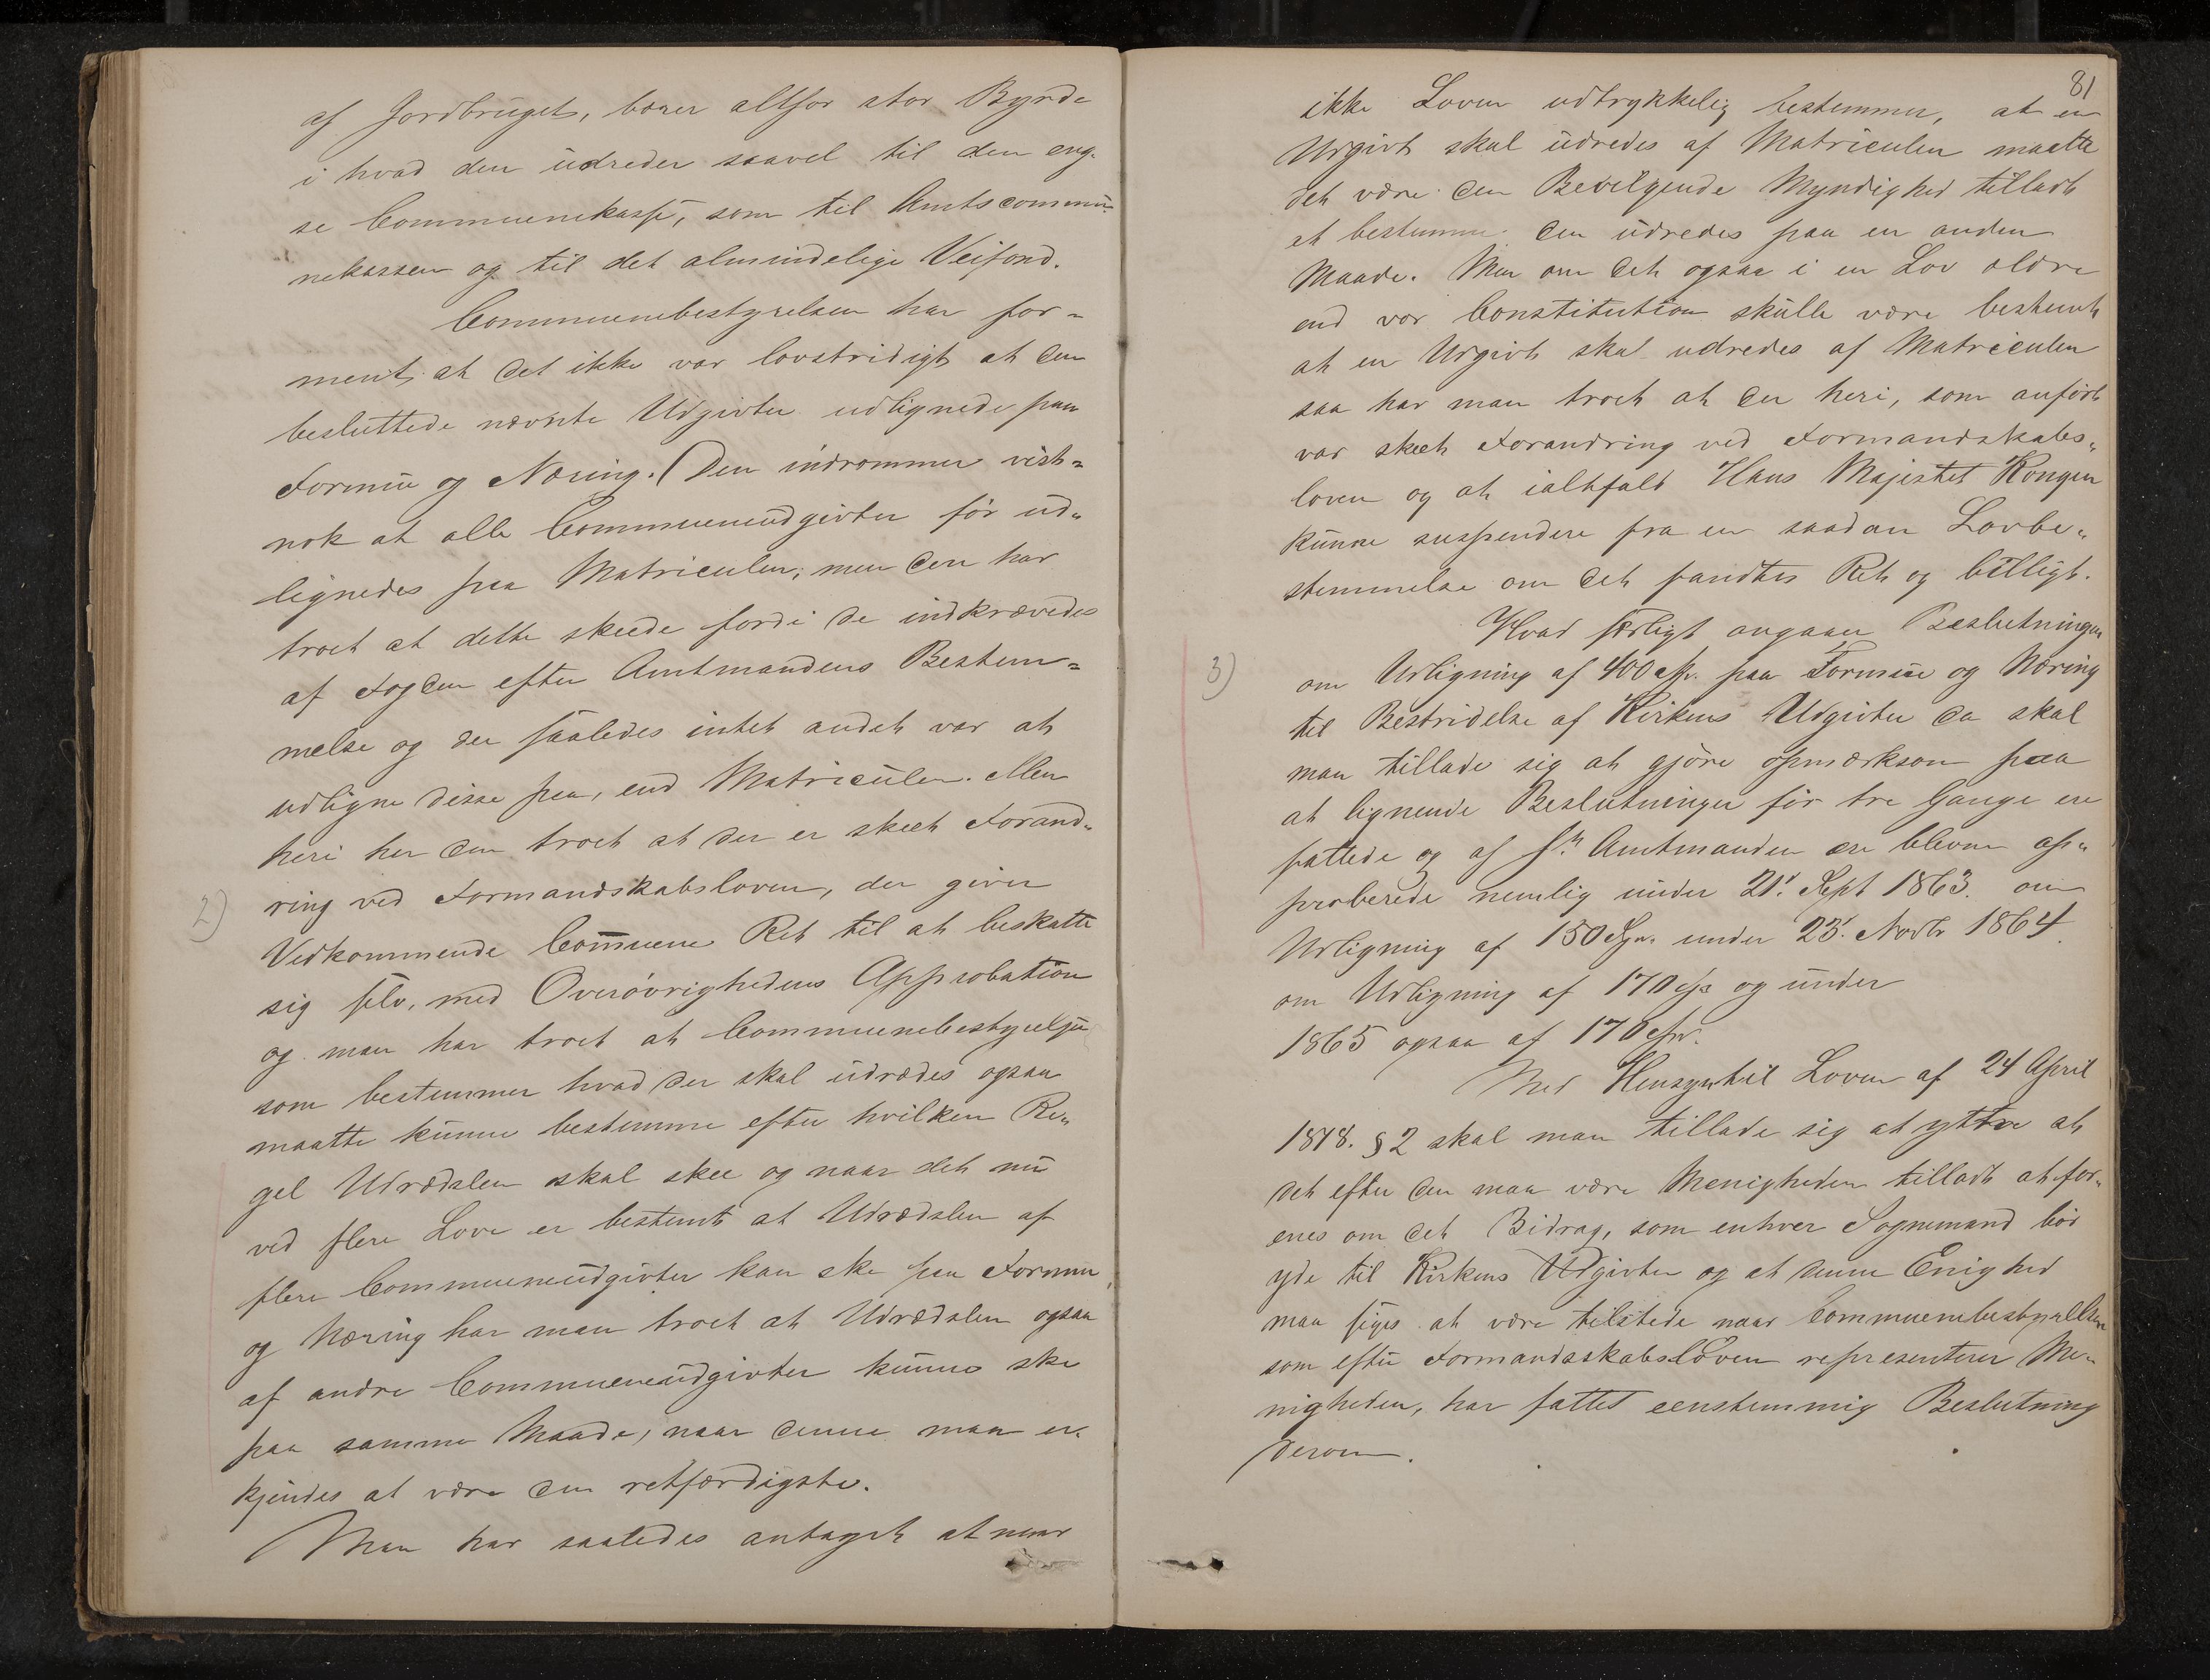 af Jordbruget, bærer altfor stor Byrde
i hvad den udreder saavel til den eng-
se Communekasse, som til Amtscommu-
nekassen og til det almindelige Veifond.
Communebestyrelsen har for-
ment at det ikke var lovstridigt at den
besluttede nævnte Udgivter udlignede paa
Formue og Næring. (Den indrømmer vist-
nok at alle Communeudgivter før ud-
lignedes paa Matriculen; men den har
troet at dette skeede fordi de indkrævedes
af Fogden efter Amtmandens Bestem-
melse og der saaledes intet andet var at
udligne disse paa, end Matriculen. Men
heri har den troet at der er skeet Forand-
2) ring ved Formandskabsloven, der giver
Vedkommende Commune Ret til at beskatte
sig selv, med Overøvrighedens Approbation
og man har troet at Communebestyrelsen
som bestemmer hvad der skal udredes ogsaa
maatte kunne bestemme efter hvilken Re-
gel Udredslen skal skee og naar det nu
ved flere Love er bestemt at Udredslen af
flere Communeudgivter kan ske paa Formue
og Næring har man troet at Udredslen ogsaa
af andre Communeudgivter kunne ske
paa samme Maade, naar denne maa er-
kjendes at være den retfærdigste.
Man har saaledes antaget at naar
81
ikke Loven udtrykkelig bestemmer, at en
Udgivt skal udredes af Matriculen maatte
det være den Bevilgende Myndighed tilladt
at bestemme den udredes paa en anden
Maade. Men om det ogsaa i en Lov ældre
end vor Constitution skulle være bestemt
at en Udgivt skal udredes af Matriculen
saa har man troet at der heri, som anført
var skeet Forandring ved Formandskabs-
loven og at ialtfald Hans Majestet Kongen
kunne suspendere fra en saadan Lovbe-
stemmelse om det fandtes Ret og billigt.
Hvad særligt angaaer Beslutningen
3) om Udligning af 400 Spd. paa Formue og Næring
til Bestridelse af Kirkens Udgivter da skal
man tillade sig at gjøre opmærksom paa
at lignende Beslutninger før tre Gange ere
fattede og af Hr. Amtmanden ere blevne ap-
proberede nemlig under 21de Sept 1863. om
Udligning af 150 Spd. under 23de Novbr 1864
om Udligning af 170 Spd og under
1865 ogsaa af 170 Spd.
Med Hensyn til Loven af 24 April
1818. § 2 skal man tillade sig at yttre at
det efter den maa være Menigheden tilladt at for-
enes om det Bidrag, som enhver Sognemand bør
yde til Kirkens Udgivter og at denne Enighed
maa siges at være tilstede naar Communebestyrelsen
som efter Formandsskabsloven representerer Me-
nigheden, har fattet eenstemmig Beslutning
derom.